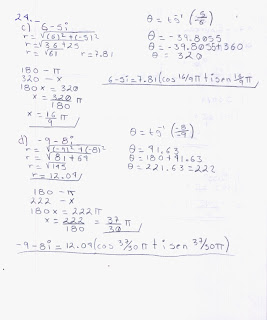 24.-
c) 6-5i
r = √(6)²+(-5)²
r = √36+25
r = √61 r = 7.81
θ = tg⁻¹ (5/6)
θ = -39.8055
θ = -39.8055+360
θ = 320
180 - π
320 - x
180x = 320
x = 320/180 π
x = 16/9 π
6-5i = 7.81 (cos 16/9 π + i sen 16/9 π
d) -9-8i
r = √(-9)²+(-8)²
r = √81+64
r = √145
r = 12.04
θ = tg⁻¹ (-8/-9)
θ = 41.63
θ = 180+41.63
θ = 221.63 = 222
180 - π
222 - x
180x = 222π
x = 222/180 = 37/30 π
-9-8i = 12.04 (cos 37/30π + i sen 37/30π)